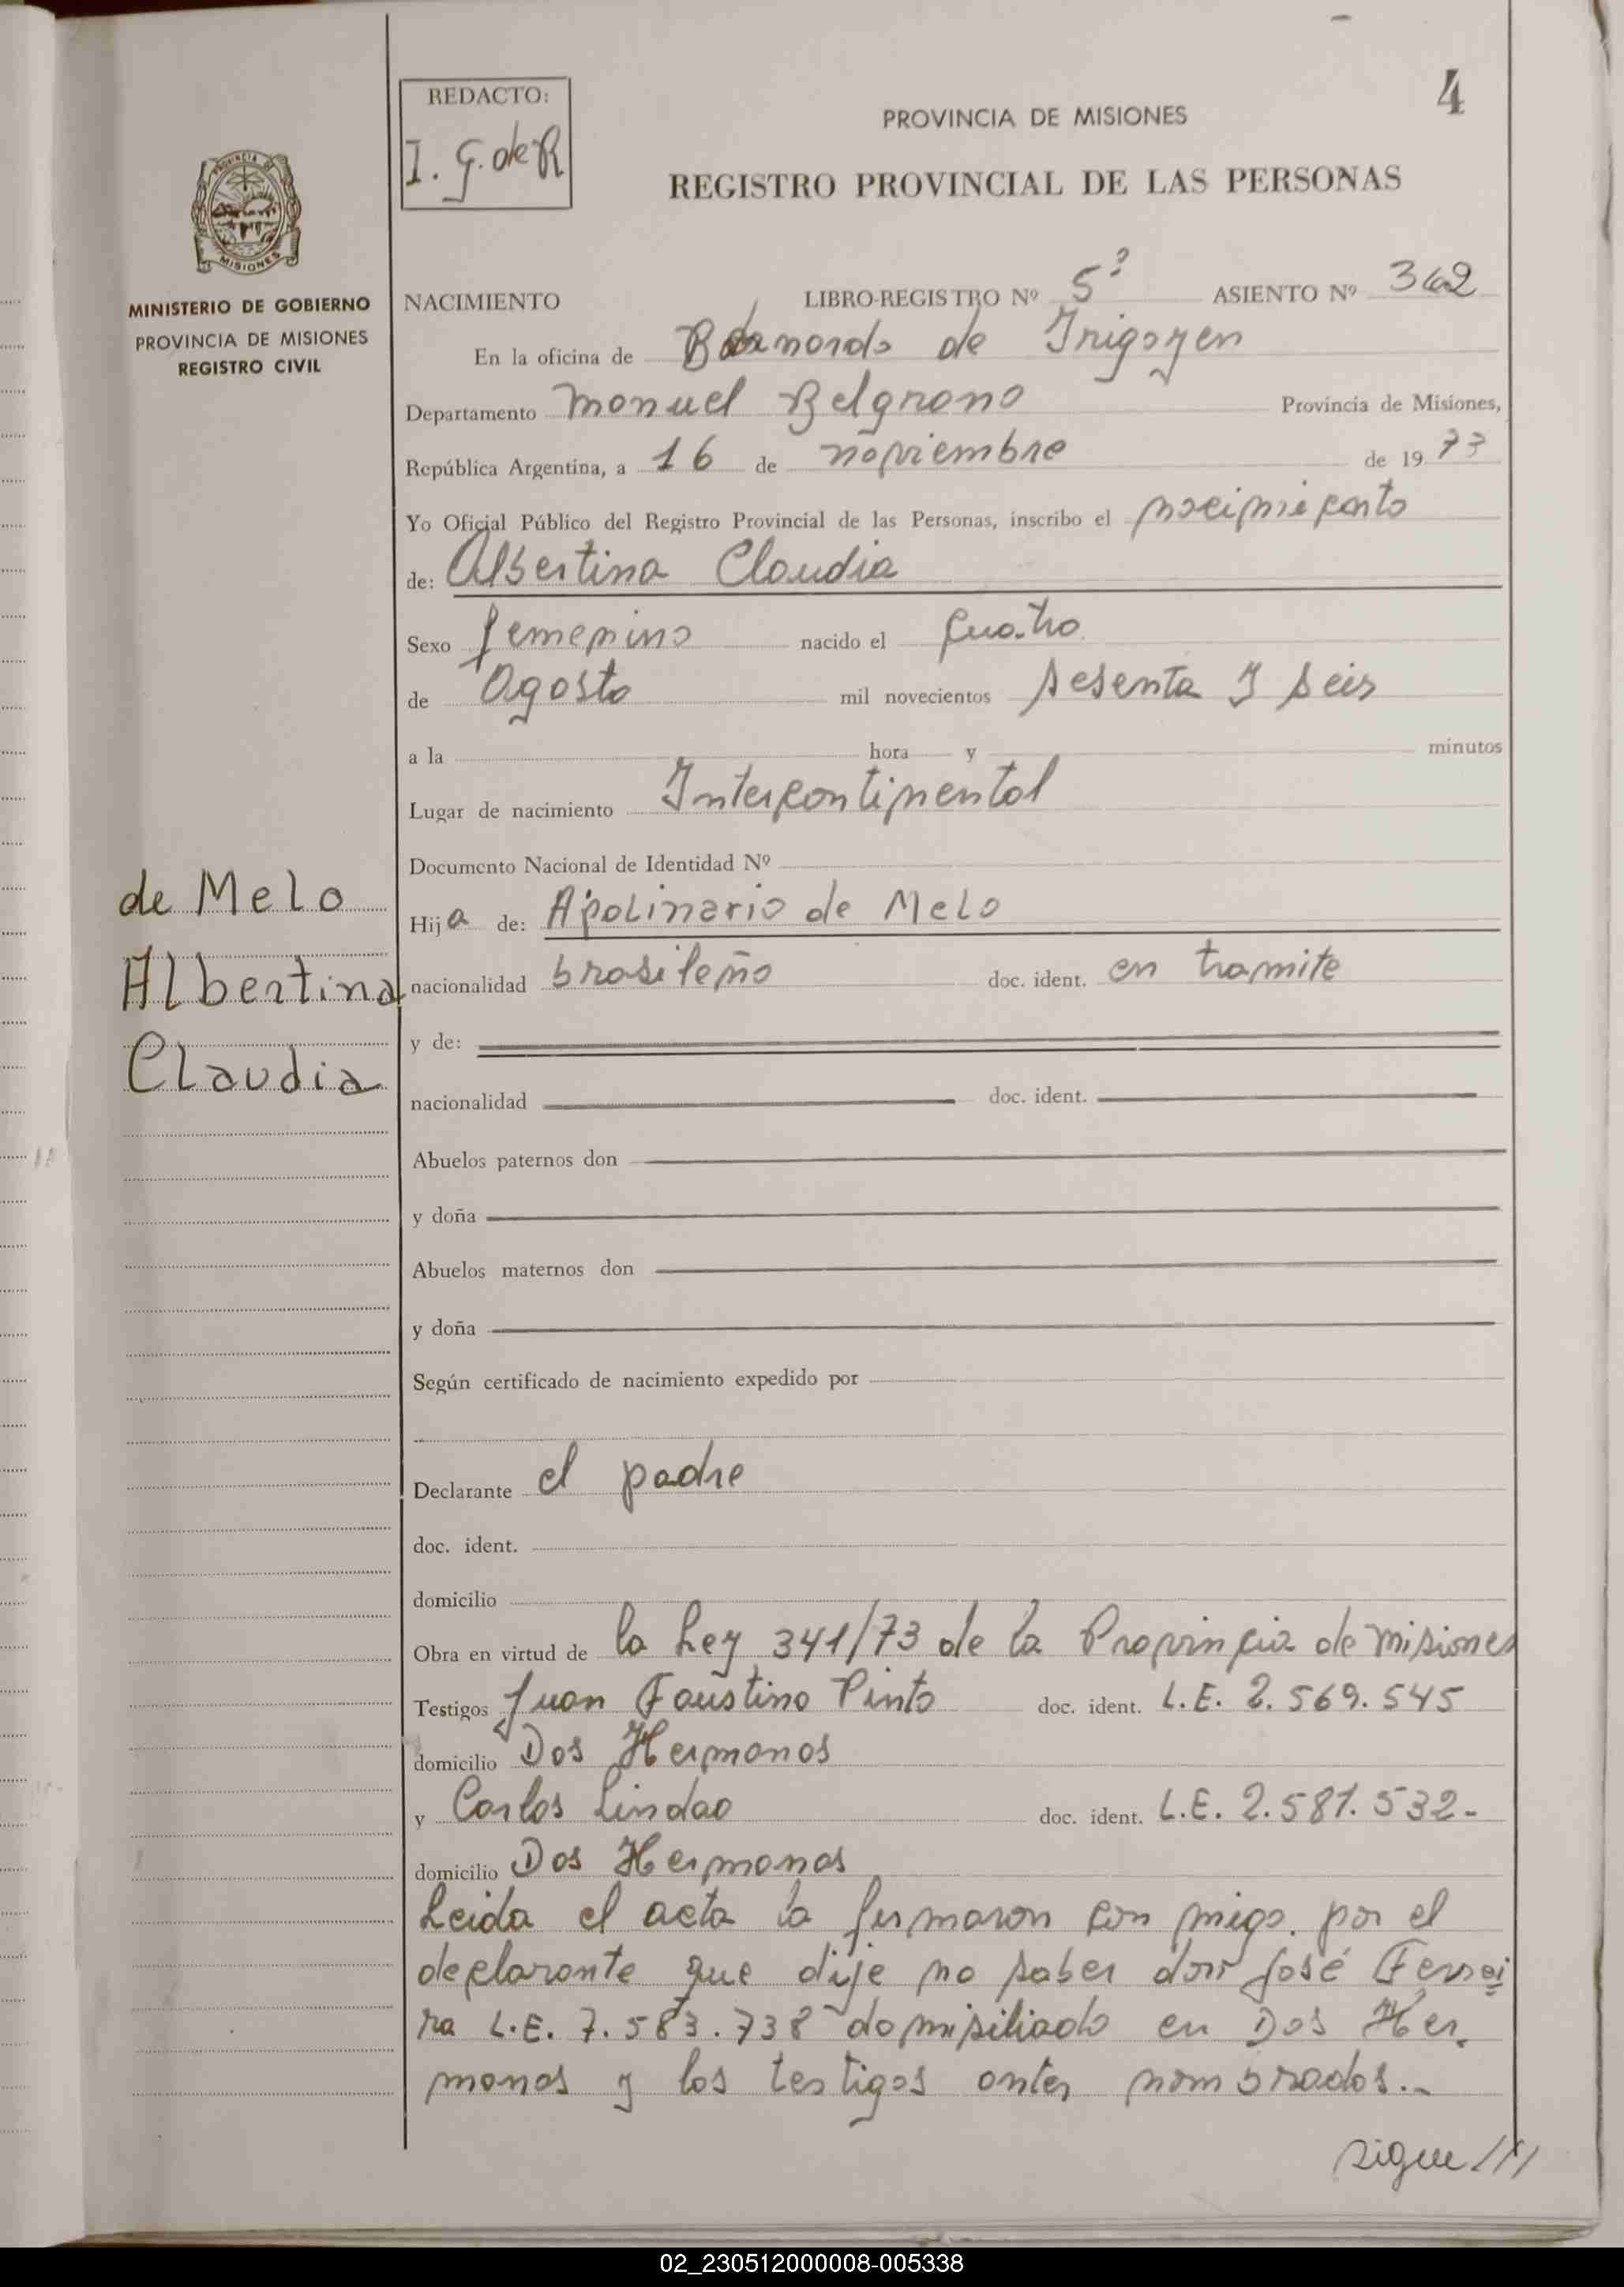 4
REDACTO:
I. G. de R
PROVINCIA DE MISIONES
REGISTRO PROVINCIAL DE LAS PERSONAS
PROVINCIA DE
MISIONES
MINISTERIO DE GOBIERNO
PROVINCIA DE MISIONES
REGISTRO CIVIL
NACIMIENTO LIBRO-REGISTRO Nº 5º ASIENTO Nº 342
En la oficina de Bernardo de Irigoyen
Departamento Manuel Belgrano Provincia de Misiones,
República Argentina, a 16 de noviembre de 1973
Yo Oficial Público del Registro Provincial de las Personas, inscribo el nacimiento
de: Albertina Claudia
Sexo femenino nacido el cuatro
de Agosto mil novecientos sesenta y seis
a la hora y minutos
Lugar de nacimiento Intercontinental
Documento Nacional de Identidad Nº
de Melo
Albertina
Claudia
Hija de: Apolinario de Melo
nacionalidad brasileño doc. ident. en tramite
y de:
nacionalidad doc. ident.
Abuelos paternos don
y doña
Abuelos maternos don
y doña
Según certificado de nacimiento expedido por
Declarante el padre
doc. ident.
domicilio
Obra en virtud de la Ley 341/73 de la Provincia de misiones
Testigos Juan Faustino Pinto doc. ident. L.E. 2.569.545
domicilio Dos Hermanas
y Carlos Lindao doc. ident. L.E. 2.581.532-
domicilio Dos Hermanas
Leida el acta la firmaron con migo. por el
declarante que dije no saber don José Ferrei
ra L.E. 7.583.738 domisiliado en Dos Her.
manas y los testigos antes nombrados.-
sigue ///
02_230512000008-005338